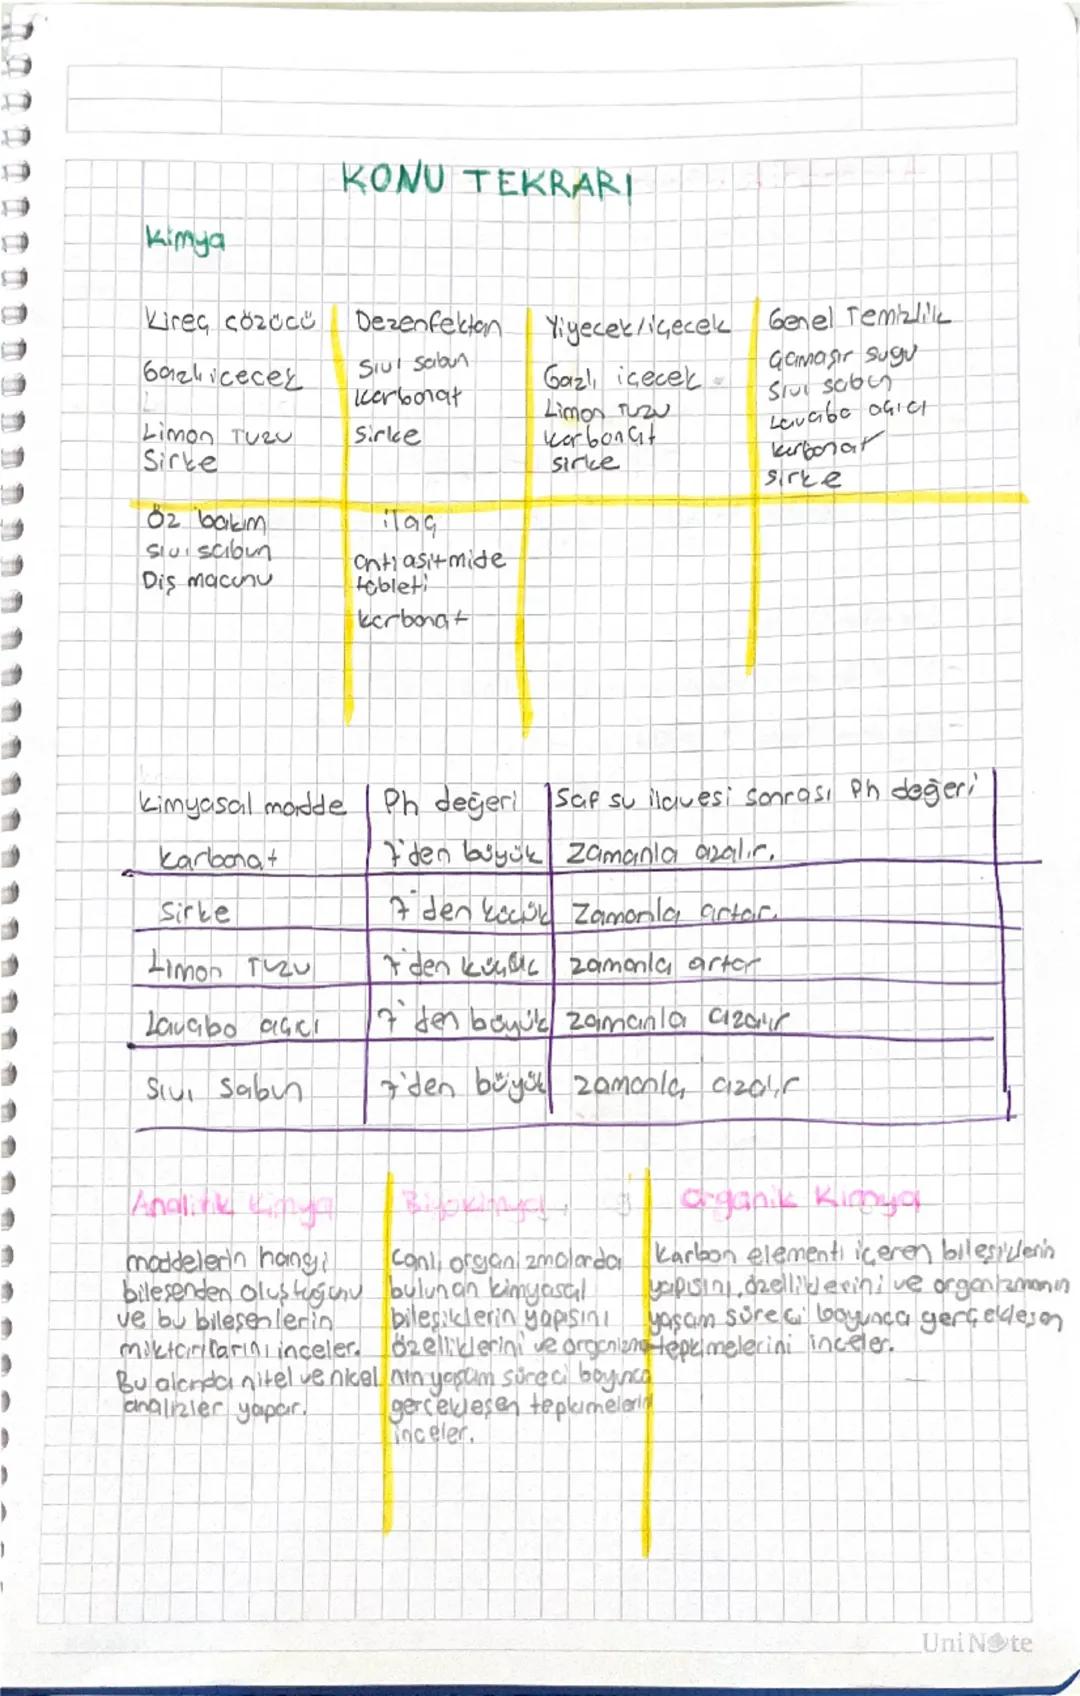 KONU TEKRARI
Kimya
Kireç çözücü
Gazlı içecek
Limon Tuzu
Sirke
Dezenfektan
Sıvı sabun
karbonat
Sirke
Yiyecek/içecek
Gazlı içecek
Limon Tuzu
karbonat
sirke
Genel Temizlik
Çamaşır suyu
Sıvı sabun
Lavabo açıcı
karbonat
sirke
Öz bakım
sıvı sabun
Diş macunu
ilaç
anti asit mide
tableti
karbonat
Kimyasal madde Ph değeri Saf su ilavesi sonrası Ph değeri
karbonat 7'den büyük Zamanla azalır.
Sirke 7'den küçük Zamanla artar.
Limon Tuzu 7'den küçük zamanla artar
Lavabo açıcı 7'den büyük zamanla azalır
Sıvı Sabun 7'den büyük zamanla azalır
Analitik Kimya
maddelerin hangi
bileşenden oluştuğunu
ve bu bileşenlerin
miktarlarını inceler.
Bu alanda nitel ve nicel
analizler yapar.
Biyokimya
Canlı organizmalarda
bulunan kimyasal
bileşiklerin yapısını
özelliklerini ve organizma
nın yaşam süreci boyunca
gerçekleşen tepkimelerini
inceler.
Organik Kimya
Karbon elementi içeren bileşiklerin
yapısını, özelliklerini ve organizmanın
yaşam süreci boyunca gerçekleşen
tepkimelerini inceler.
UniNote